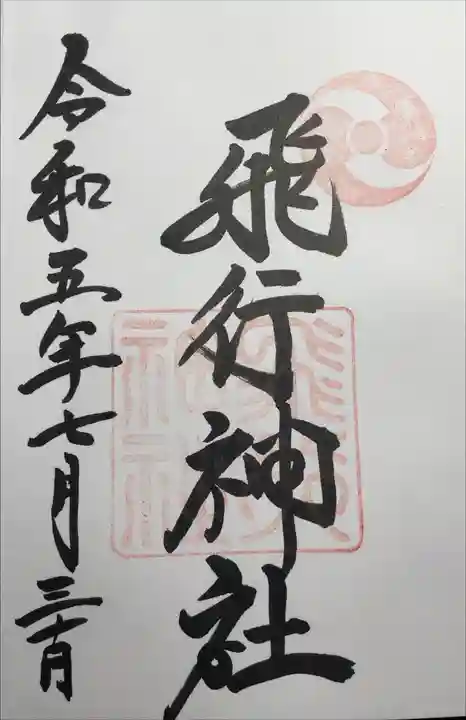 飛行神社
令和五年七月三十日